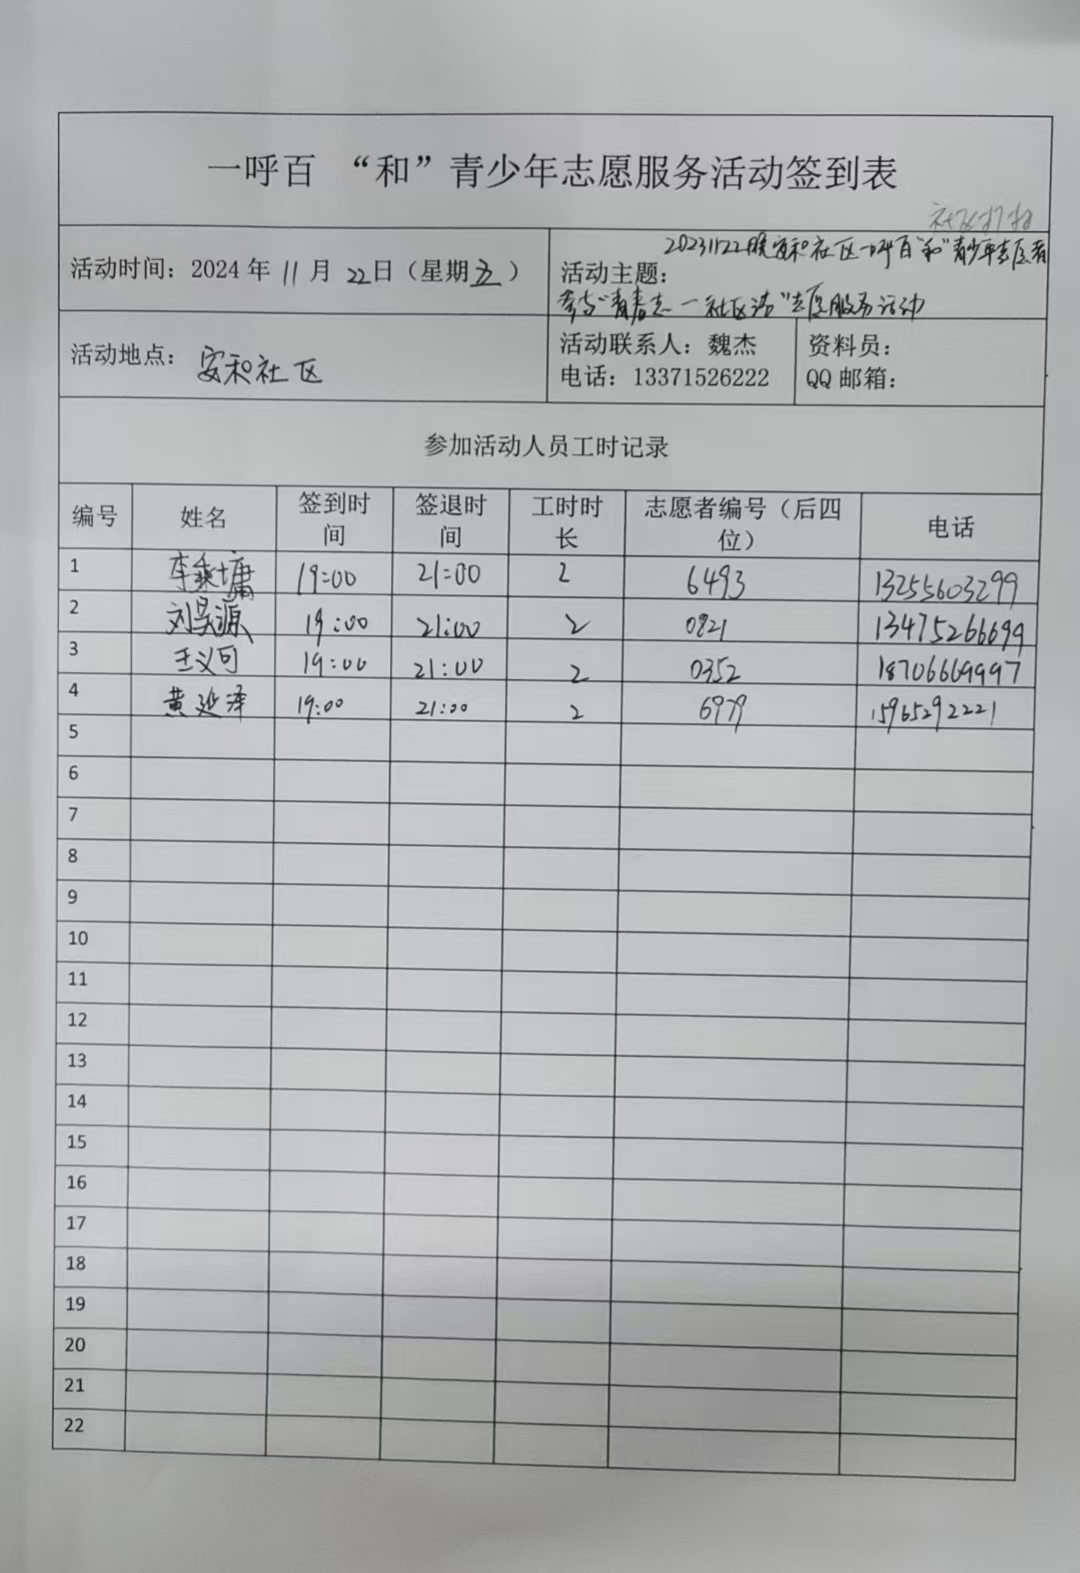 一呼百 “和”青少年志愿服务活动签到表
社区打扫
活动时间：2024年 11月 22日（星期五）
20231122晚安和社区一呼百“和”青少年志愿者
活动主题：
参与“青春志 一 社区清”志愿服务活动
活动地点： 安和社区
活动联系人：魏杰
电话：13371526222
资料员：
QQ邮箱：
参加活动人员工时记录
编号 姓名 签到时间 签退时间 工时时长 志愿者编号（后四位） 电话
1 李秉墉 19:00 21:00 2 6493 13255603299
2 刘昊源 19:00 21:00 2 0821 13475266699
3 王义可 19:00 21:00 2 0352 18706669997
4 黄延泽 19:00 21:00 2 6979 15965292221
5
6
7
8
9
10
11
12
13
14
15
16
17
18
19
20
21
22